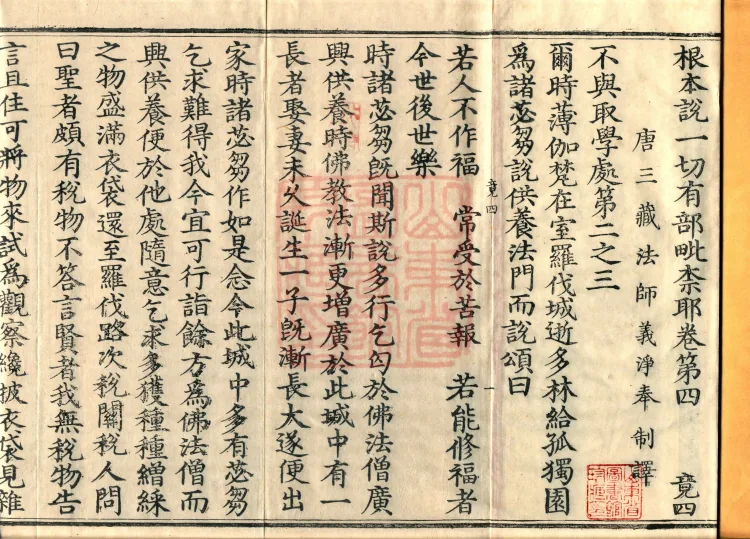 根本說一切有部毗柰耶卷第四 竟四
唐三藏法師義淨奉制譯
不與取學處第二之三
爾時薄伽梵在室羅伐城逝多林給孤獨園
爲諸苾芻說供養法門而說頌曰
竟四
若人不作福 常受於苦報 若能修福者
今世後世樂
時諸苾芻旣聞斯說多行乞匃於佛法僧廣
興供養時佛教法漸更增廣於此城中有一
長者娶妻未久誕生一子旣漸長大遂便出
家時諸苾芻作如是念今此城中多有苾芻
乞求難得我今宜可行詣餘方爲佛法僧而
興供養便於他處隨意乞求多獲種種繒綵
之物盛滿衣袋還至羅伐路次稅關稅人問
曰聖者頗有稅物不答言賢者我無稅物告
言且住可將物來試爲觀察纔披衣袋見雜